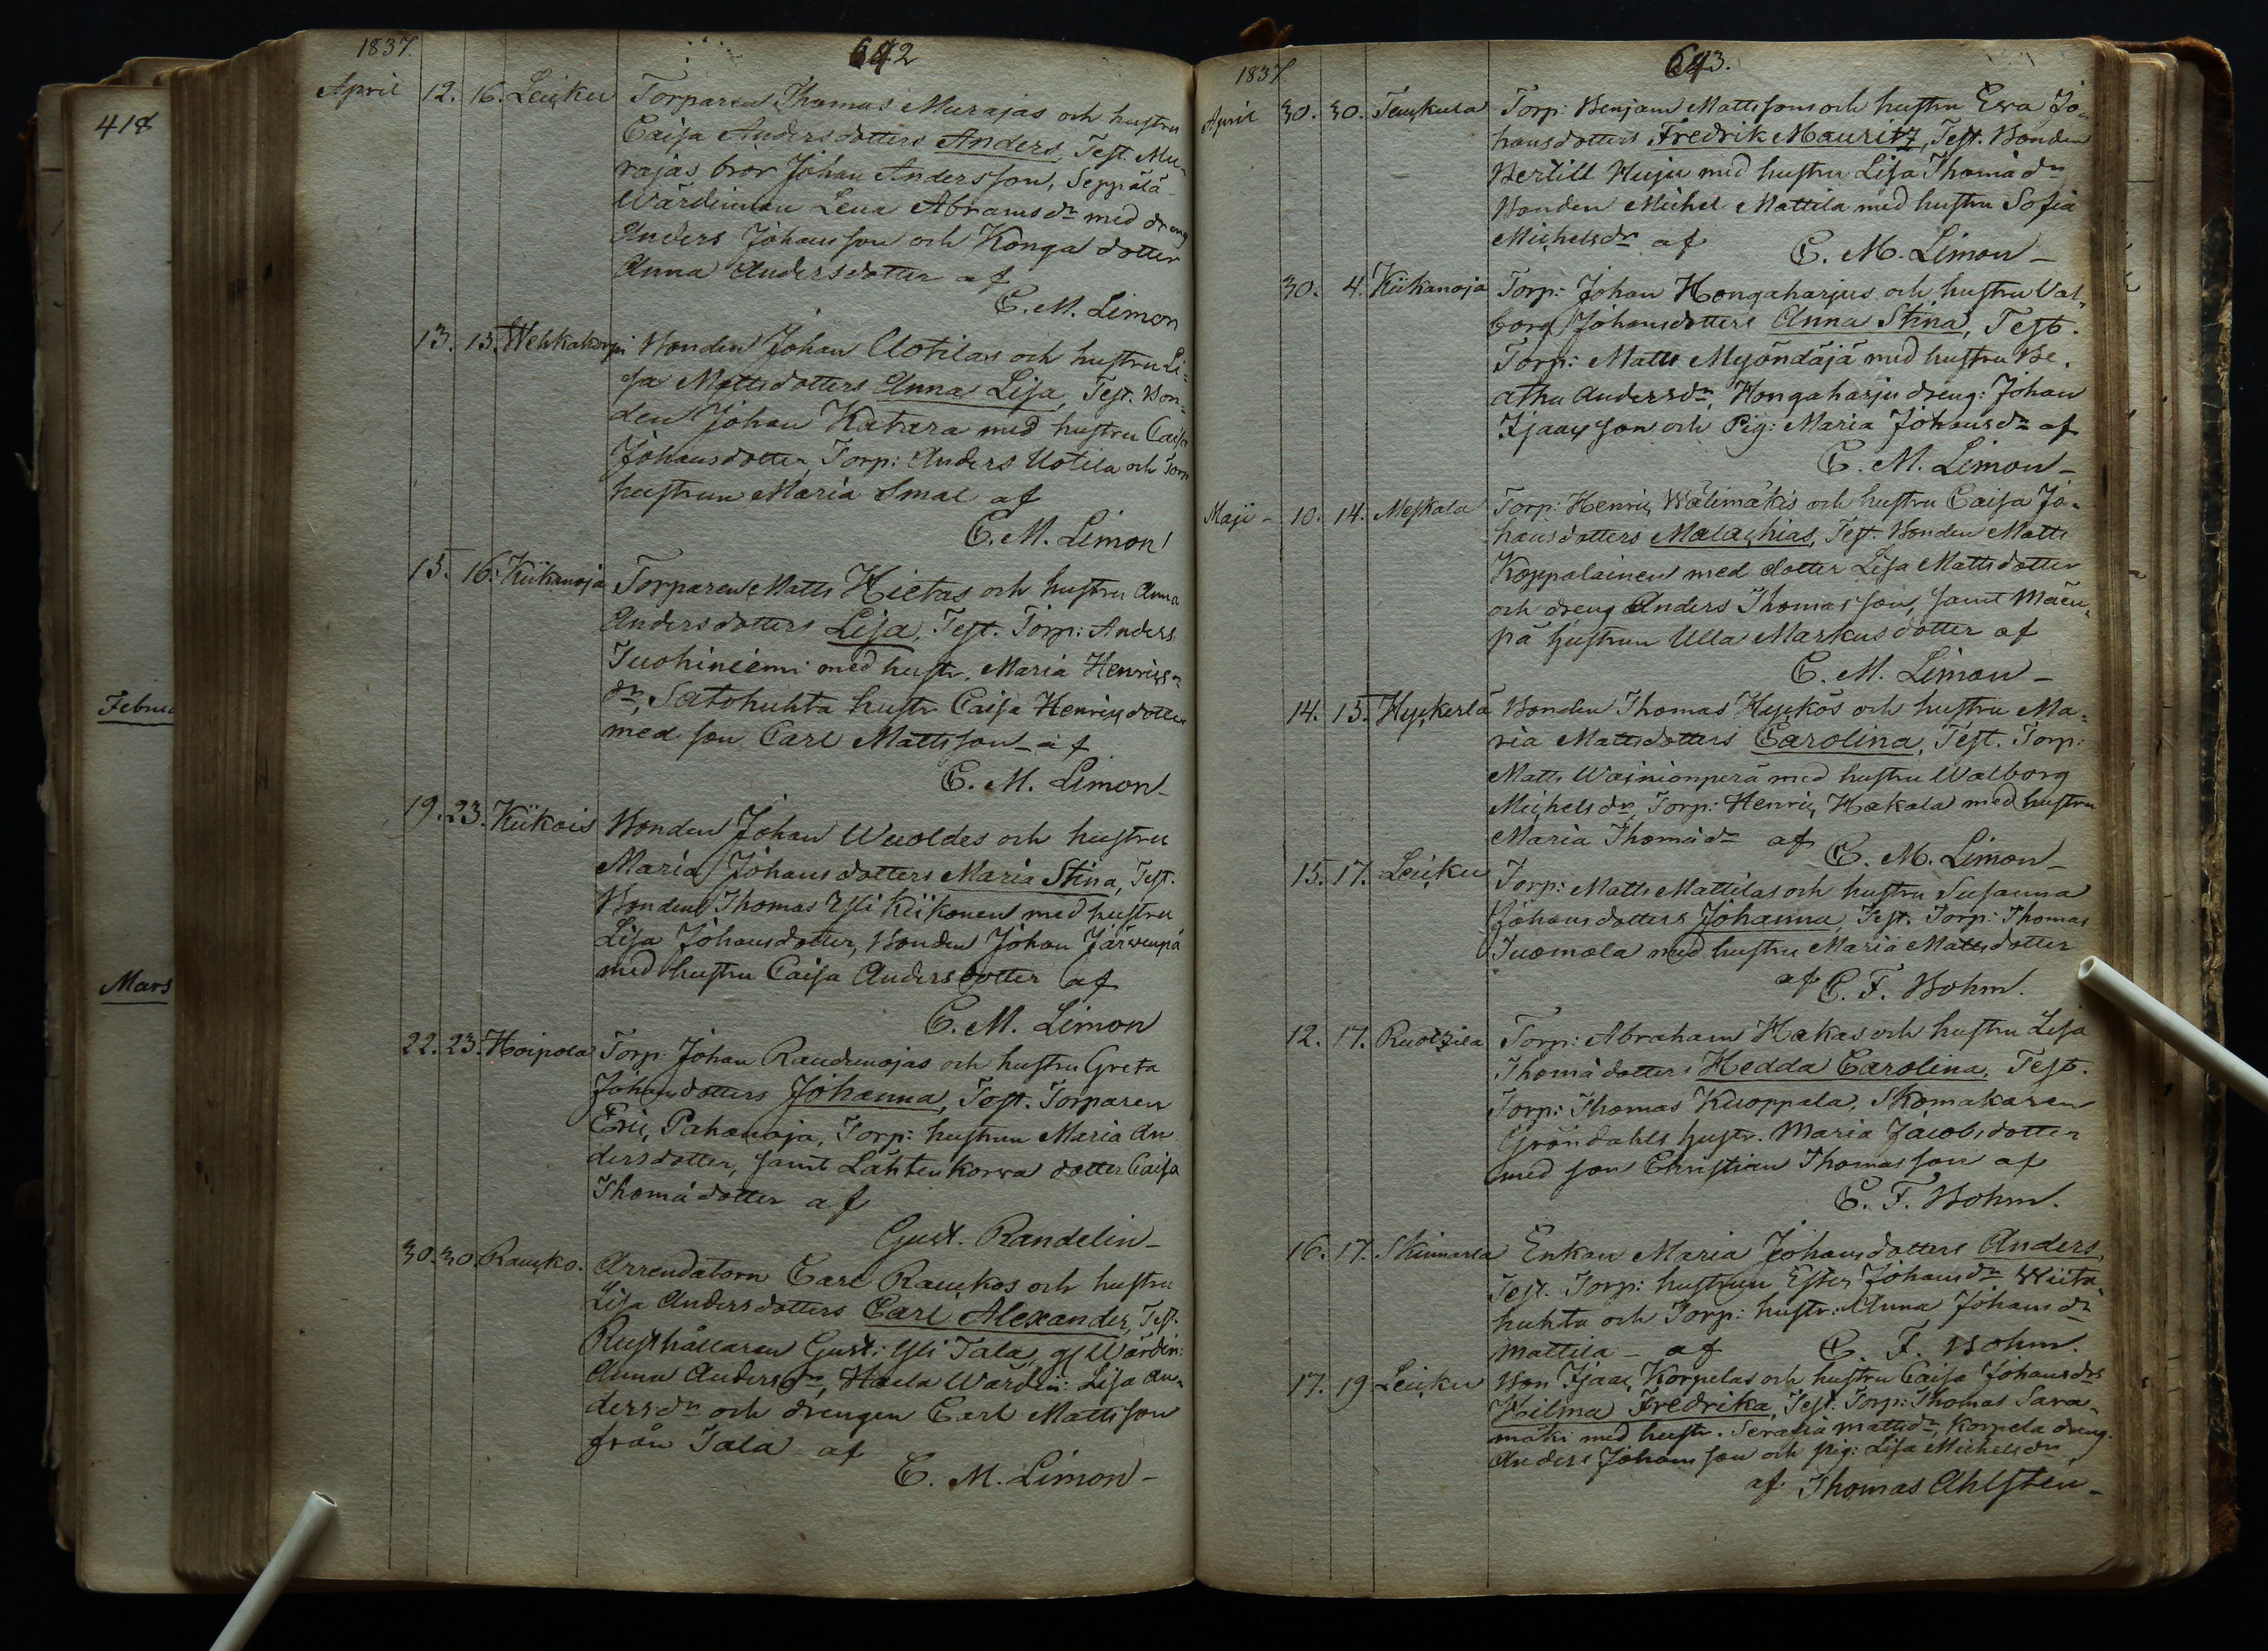 418
Februa
Mars
1837.
642
April 12. 16. Leucku Torparen Thomas Murajas och hustru
Caisa Andersdotters Anders, Test. Mu-
rajas bror Johan Andersson, Seppälä
Wärdinnan Lena Abramsdr med dreng
Anders Johansson och Konga dotter
Anna Andersdotter af
C. M. Limon
13. 15. Wehkakorpi Bonden Johan Uotilas och hustru Li-
sa Mattsdotters Anna Lisa, Test. Bon-
den Johan Katara med hustru Caisa
Johansdotter, Torp: Anders Uotila och Torp
hustrun Maria Smal af
C. M. Limon
15. 16. Kiikanoja Torparen Matts Hietas och hustru Anna
Andersdotters Lisa, Test. Torp: Anders
Tuohiniemi med hustr. Maria Henrics-
dr, Satohuhta hustr Caisa Henricsdotter
med son Carl Mattsson af
C. M. Limon
19. 23. Kiikois Bonden Johan Wuoldes och hustru
Maria Johansdotters Maria Stina, Test.
Bonden Thomas Ysti Kiikonen med hustru
Lisa Johansdotter, Bonden Johan Järvenpä
med hustru Caisa Andersdotter af
C. M. Limon
22. 23. Hoipola Torp. Johan Raudunojas och hustru Greta
Johansdotters Johanna, Test. Torparen
Eric Pahanoja, Torp: hustrun Maria An-
dersdotter, samt Lähtenkorva dotter Caisa
Thomädotter af
Gust. Randelin
30. 30 Raucko. Arrendatorn Carl Rauckos och hustru
Lisa Andersdotters Carl Alexander, Test.
Rusthållaren Gust: Yli Tala, gl Wärdin:
Anna Andersdr, Haela Wärdin: Lisa An-
dersdr och drengen Carl Mattsson
från Tala af
C. M. Limon
1837
643.
April 30. 30. Teuckula Torp: Benjam Mattssons och hustru Eva Jo-
hansdotters Fredrik Mauritz, Test. Bonden
Bertill Huju med hustru Lisa Thomädr
Bonden Michel Mattila med hustru Sofia
Michelsdr af C. M. Limon
30. 4. Kiikanoja Torp: Johan Hongaharjus och hustru Val-
borg Johansdotters Anna Stina, Test.
Torp: Matts Myöndäjä med hustru Be-
atha Andersdr, Hongaharju dreng: Johan
Isaacsson och Pig: Maria Johansdr af
C. M. Limon
Maji 10. 14. Meskala Torp: Henric Wälimäkis och hustru Caisa Jo-
hansdotters Malachias, Test. Bonden Matts
Koppalainen med dotter Lisa Mattsdotter
och dreng Anders Thomasson, samt Mäen-
pä hustrun Ulla Markusdotter af
C. M. Limon
14. 15. Hyckerlä Bonden Thomas Hyckös och hustru Ma-
ria Mattsdotters Carolina, Test. Torp:
Matts Wainionperä med hustru Walborg
Michelsdr, Torp: Henric Hakala med hustru
Maria Thomädr af C. M. Limon
15. 17. Leucku Torp: Matts Mattilas och hustru Susanna
Johansdotters Johanna, Test. Torp: Thomas
Tuomola med hustru Maria Mattsdotter
af C. F. Bohm.
12. 17. Ruotzila Torp: Abraham Hakas och hustru Lisa
Thomädotters Hedda Carolina, Test.
Torp: Thomas Kuoppala, Skomakaren
Gröndahls hustr. Maria Jacobsdotter
med son Christian Thomasson af
C. F. Bohm.
16. 17. Skinnarla Enkan Maria Johansdotters Anders,
Test. Torp: hustrun Ester Johansdr Wiita-
huhta och Torp: hustr: Anna Johansdr
Mattila af C. F. Bohm.
17. 19 Leucku Bon Isaac Korpelas och hustru Caisa Johansdrs
Hilma Fredrika, Test. Torp: Thomas Sara-
mäki med hustr. Serafia Mattsdr, Korpela dreng.
Anders Johansson och pig: Lisa Michelsdr
af Thomas Ahlsten